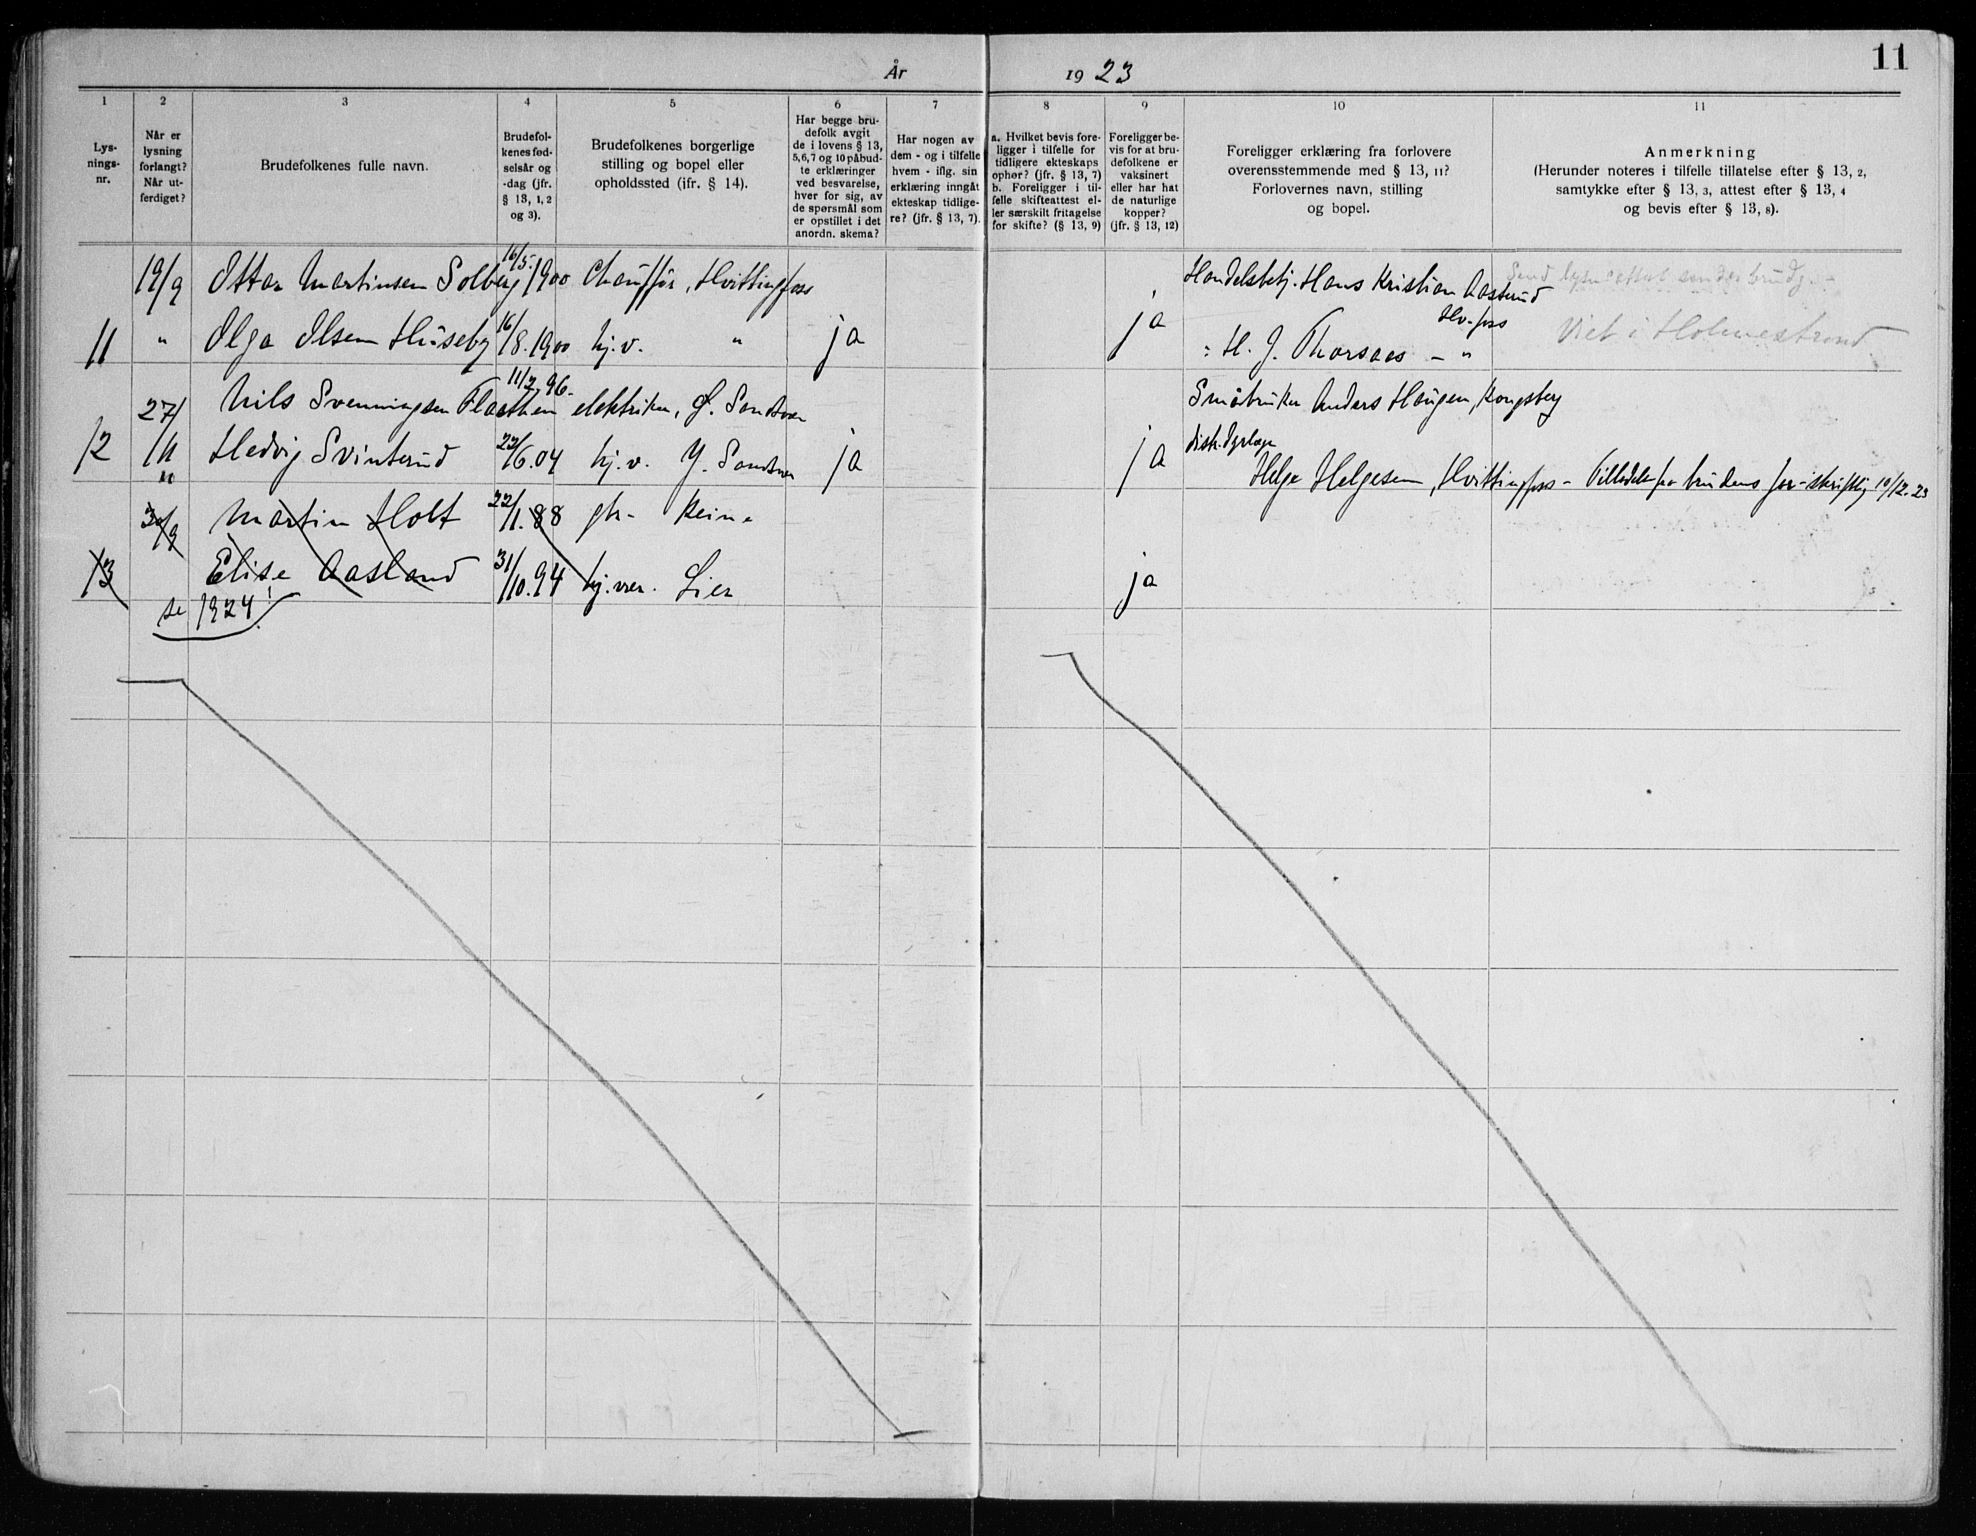 11
År 1923
1 2 3 4 5 6 7 8 9 10 11
Lys-
nings-
nr.
Når er
lysning
forlangt?
Når ut-
ferdiget?
Brudefolkenes fulle navn.
Brudefol-
kenes fød-
selsår og
-dag (jfr.
§ 13, 1, 2
og 3).
Brudefolkenes borgerlige
stilling og bopel eller
opholdssted (ifr. § 14).
Har begge bru-
defolk avgit
de i lovens § 13,
5, 6, 7 og 10 påbud-
te erklæringer
ved besvarelse,
hver for sig, av
de spørsmål som
er opstillet i det
anordn. skema?
Har nogen av
dem - og i tilfelle
hvem - iflg. sin
erklæring inngått
ekteskap tidlige-
re? (jfr. § 13, 7).
a. Hvilket bevis fore-
ligger i tilfelle for
tidligere ekteskaps
ophør? (jfr. § 13, 7)
b. Foreligger i til-
felle skifteattest el-
ler særskilt fritagelse
for skifte? (§ 13, 9)
Foreligger be-
vis for at bru-
defolkene er
vaksinert
eller har hat
de naturlige
kopper?
(jfr. § 13, 12)
Foreligger erklæring fra forlovere
overensstemmende med § 13, 11?
Forlovernes navn, stilling
og bopel.
Anmerkning
(Herunder noteres i tilfelle tillatelse efter § 13, 2,
samtykke efter § 13, 3, attest efter § 13, 4
og bevis efter § 13, 8).
19/9 Ottar Martinsen Solberg 16/5.1900 Chauffør, Hvittingfoss Handelsbetj. Hans Kristian Aasterud
Hv.foss
11 " Olga Olsen Huseby 16/8.1900 hj.v. " ja ja : H. J. Thorsaas - " Viet i Holmestrand
27/11 Nils Svenningsen Flaathen 11/7.96. elektriker, Ø. Sandsvær Småbruker Anders Haugen, Kongsberg
12 " Hedvig Svinterud 22/6.04 hj.v. Y. Sandsvær ja ja distr.dyrlæge
Helge Helgesen, Hvittingfoss - Tilladelse fra brudens far - skriftlig 10/12.23
30/9 Martin Holt 22/1.88 gbr.
13 Elise Aasland 31/10.94 hj.vær. Lier ja
se 1924!